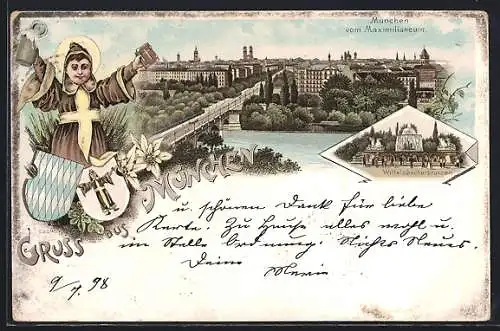 München
vom Maximilianeum.
Wittelsbacherbrunnen
GRUSS aus MÜNCHEN
u. schönen Dank für liebe
Karte. Zu Hause alles wohl u.
im Stelle Ordnung. Nichts Neues.
Deine Marie
9/7. 98